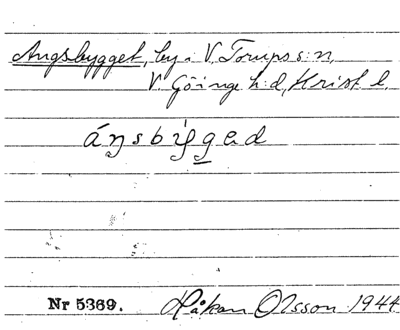 Ängsbygget, by i V. Torups s:n,
V. Göinge h:d, Krist. l.
áŋsbẏg̲ad
Nr 5369. Håkan Olsson 1944